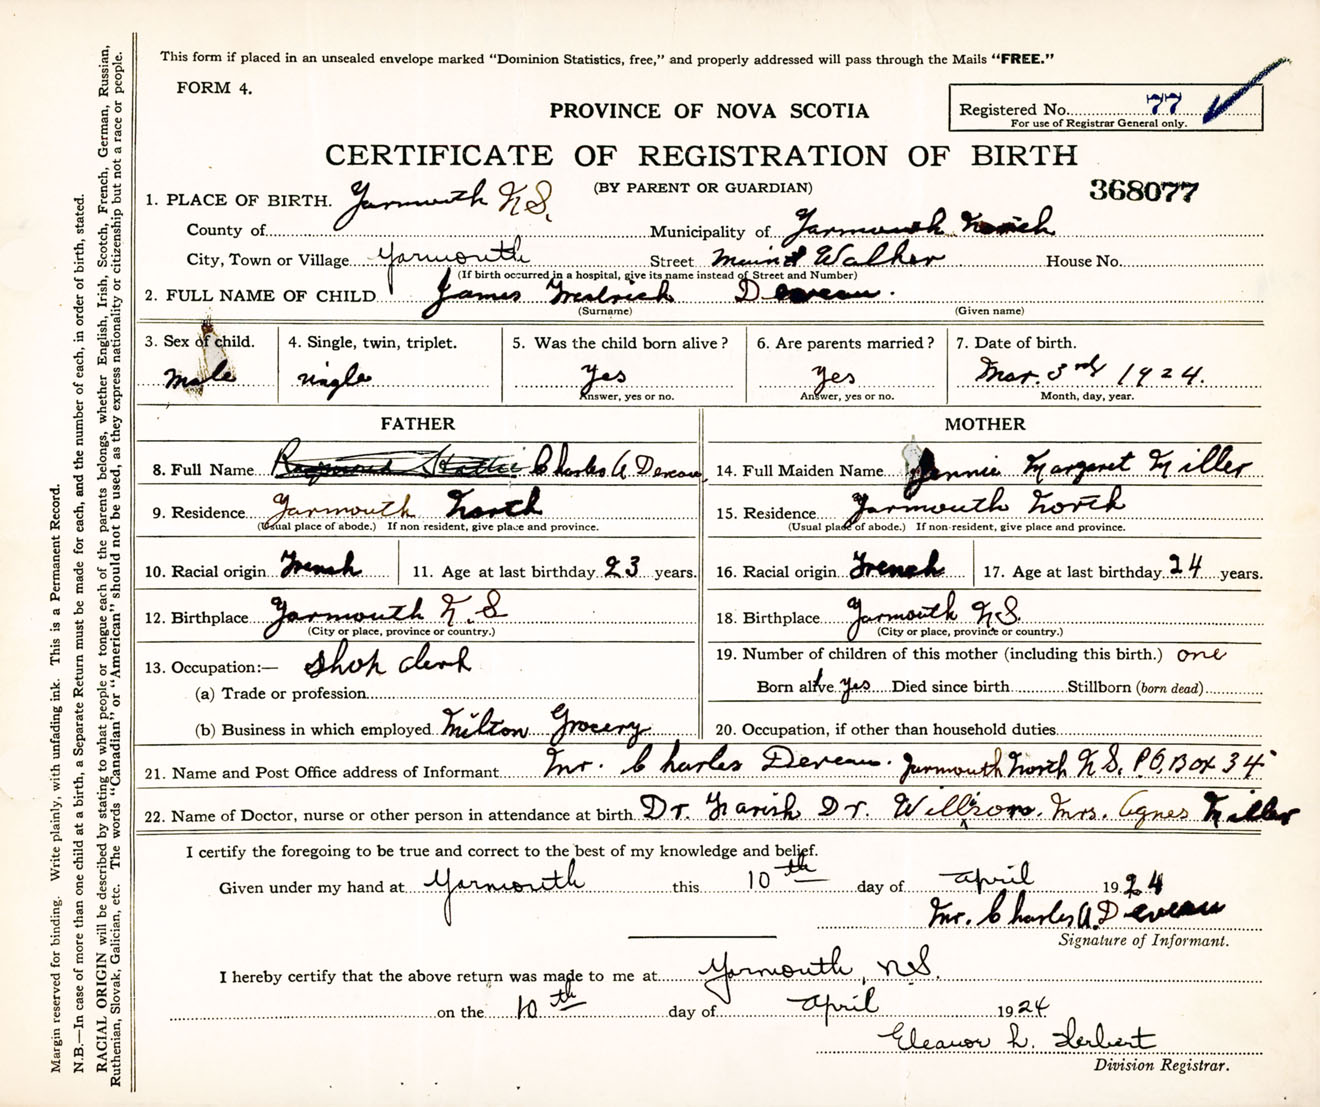 This form if placed in an unsealed envelope marked "Dominion Statistics, free," and properly addressed will pass through the Mails "FREE."
FORM 4.
PROVINCE OF NOVA SCOTIA
Registered No. 77
For use of Registrar General only.
CERTIFICATE OF REGISTRATION OF BIRTH
(BY PARENT OR GUARDIAN)
368077
1. PLACE OF BIRTH. Yarmouth N.S.
County of Municipality of Yarmouth North
City, Town or Village Yarmouth Street Walker House No.
(If birth occurred in a hospital, give its name instead of Street and Number)
2. FULL NAME OF CHILD James Fredrich Deveau.
(Surname) (Given name)
3. Sex of child. 4. Single, twin, triplet. 5. Was the child born alive? 6. Are parents married? 7. Date of birth.
Male single Yes Yes Mar. 3rd 1924.
Answer, yes or no. Answer, yes or no. Month, day, year.
FATHER MOTHER
8. Full Name Charles A Deveau 14. Full Maiden Name Jennie Margaret Miller
9. Residence Yarmouth North 15. Residence Yarmouth North
(Usual place of abode.) If non resident, give place and province. (Usual place of abode.) If non-resident, give place and province.
10. Racial origin French 11. Age at last birthday 23 years. 16. Racial origin French 17. Age at last birthday 24 years.
12. Birthplace Yarmouth N.S 18. Birthplace Yarmouth N.S.
(City or place, province or country.) (City or place, province or country.)
13. Occupation:— Shop clerk 19. Number of children of this mother (including this birth.) one
(a) Trade or profession Born alive yes Died since birth Stillborn (born dead)
(b) Business in which employed Milton Grocery 20. Occupation, if other than household duties
21. Name and Post Office address of Informant Mr. Charles Deveau. Yarmouth North N.S. P.O. Box 34
22. Name of Doctor, nurse or other person in attendance at birth Dr. Farish Dr. Willson. Mrs. Agnes Miller
I certify the foregoing to be true and correct to the best of my knowledge and belief.
Given under my hand at Yarmouth this 10th day of April 1924
Mr. Charles A. Deveau
Signature of Informant.
I hereby certify that the above return was made to me at Yarmouth, N.S.
on the 10th day of April 1924
Eleanor L. Herbert
Division Registrar.
Margin reserved for binding. Write plainly, with unfading ink. This is a Permanent Record.
N.B.—In case of more than one child at a birth, a Separate Return must be made for each, and the number of each, in order of birth, stated.
RACIAL ORIGIN will be described by stating to what people or tongue each of the parents belongs, whether English, Irish, Scotch, French, German, Russian,
Ruthenian, Slovak, Galician, etc. The words "Canadian" or "American" should not be used, as they express nationality or citizenship but not a race or people.